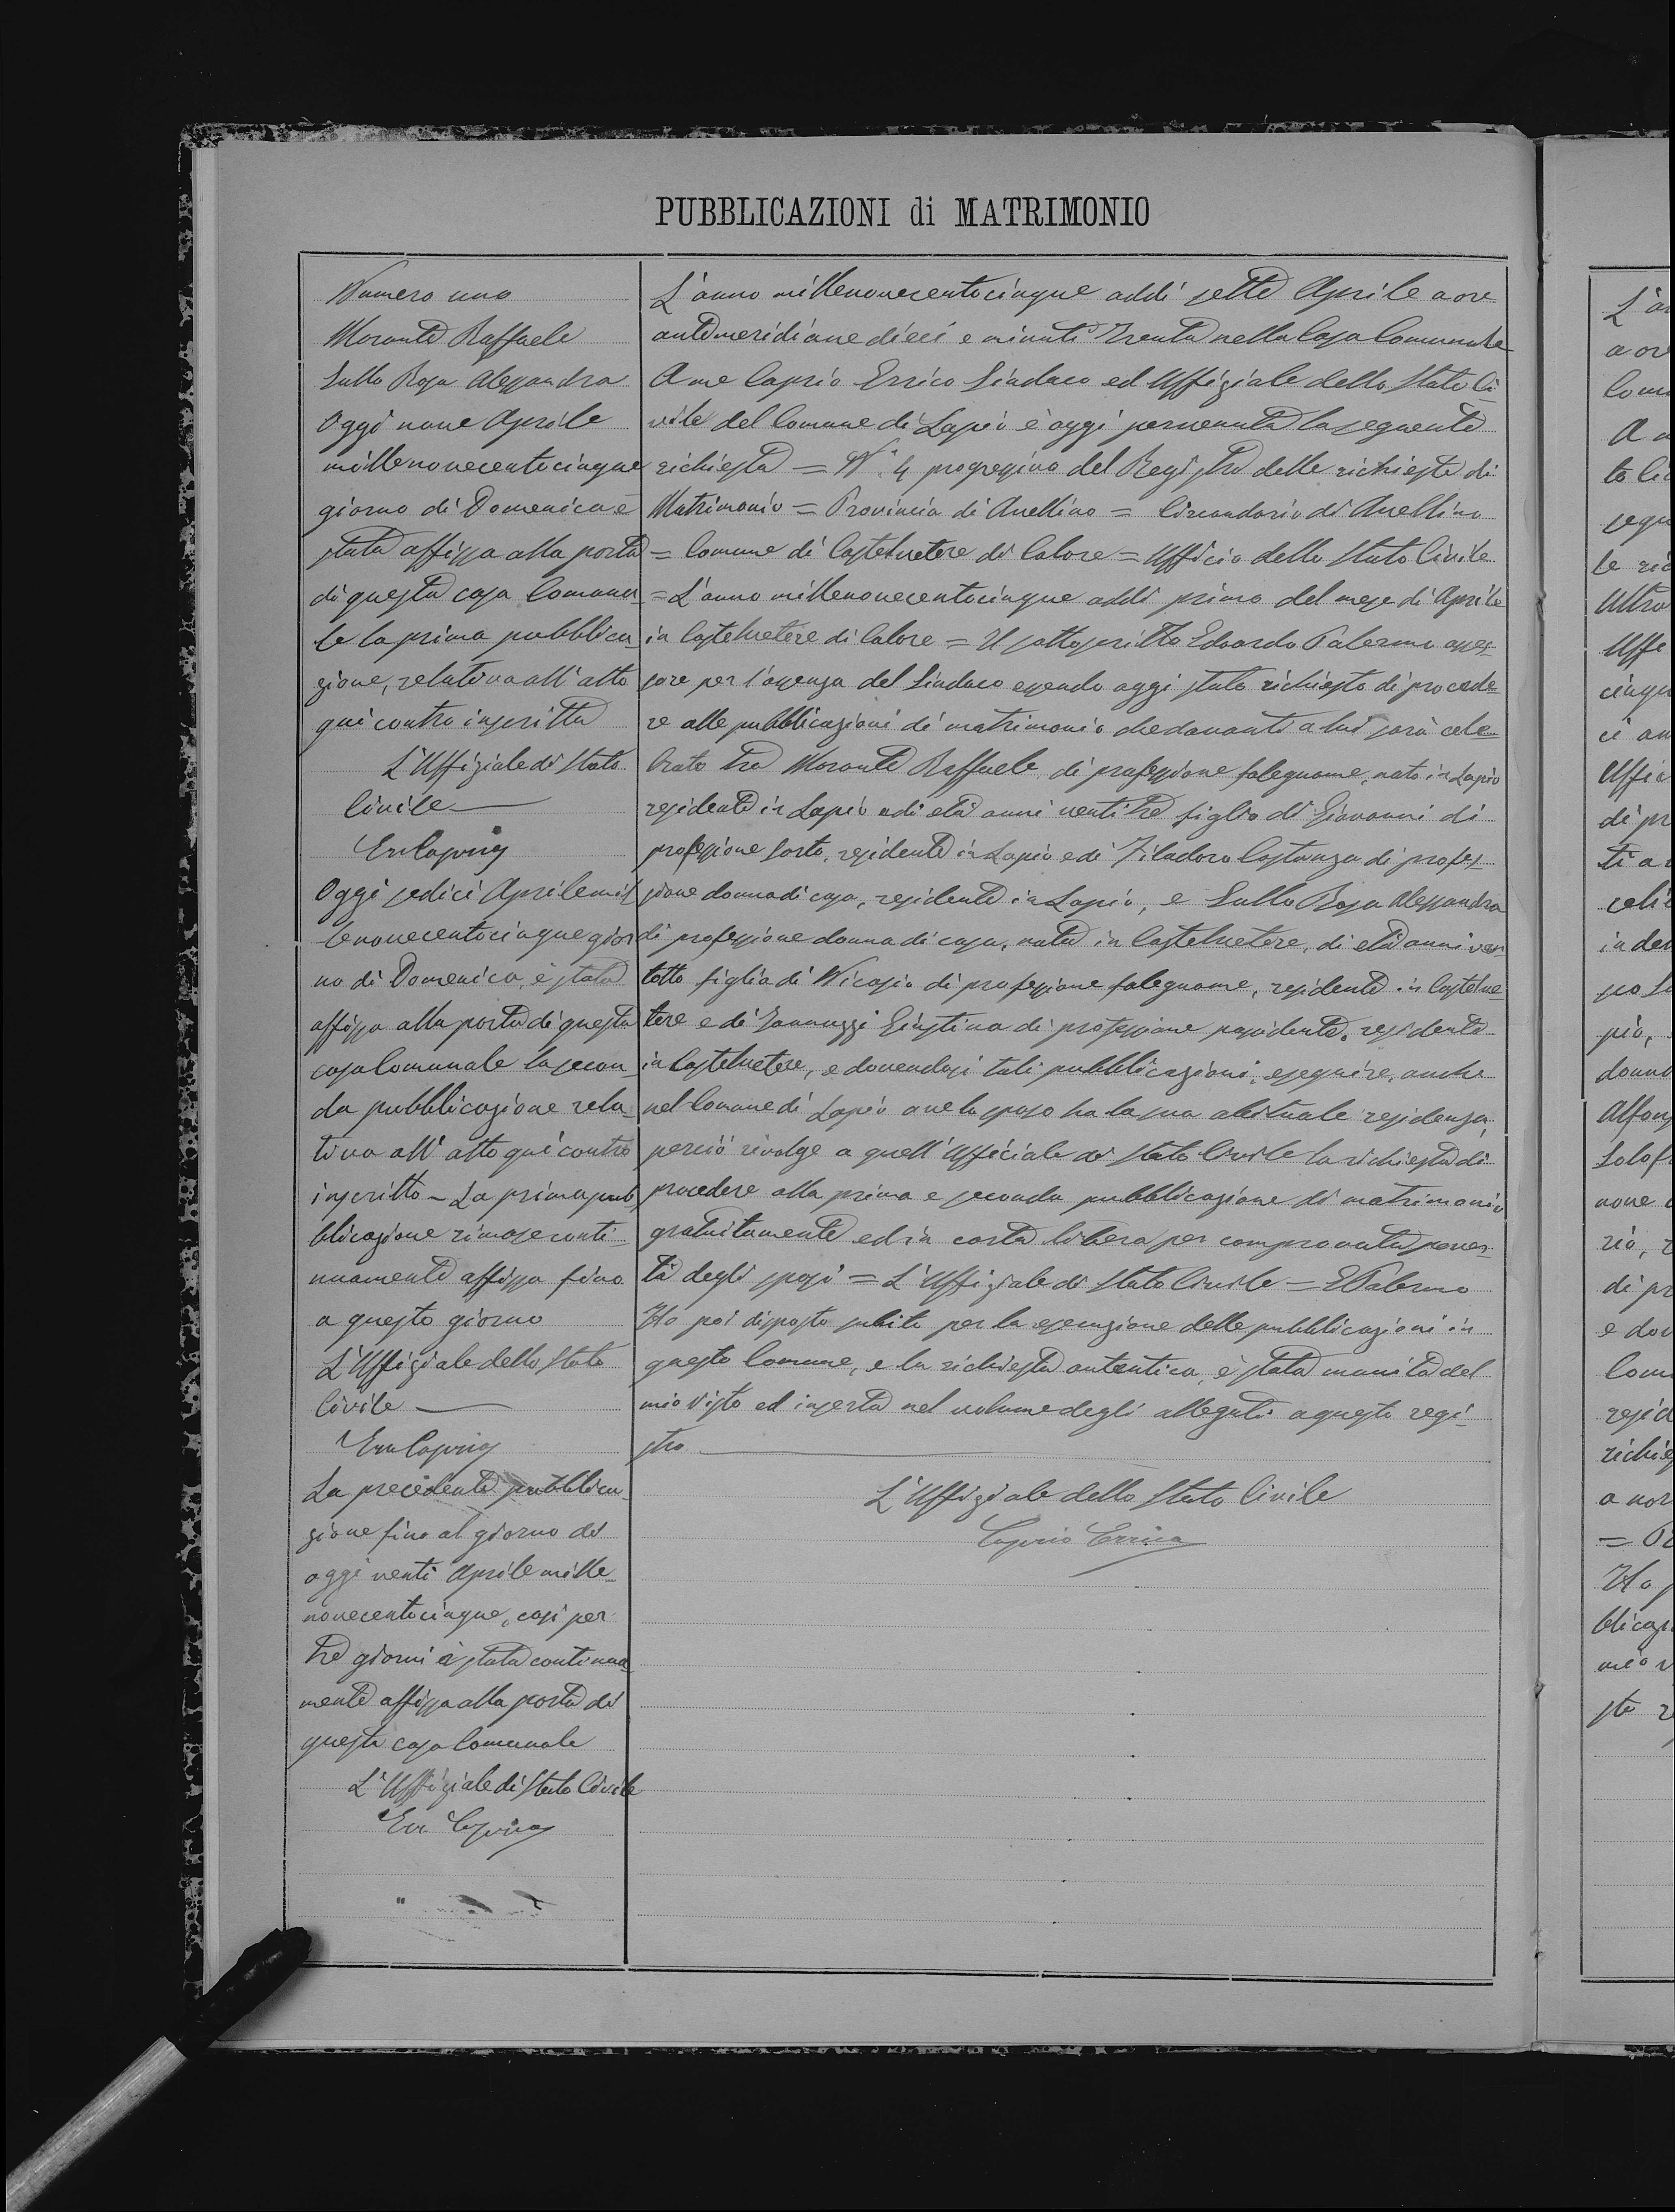 PUBBLICAZIONI di MATRIMONIO
Numero uno
Morante Raffaele
Sullo Rosa Alessandra
Oggi nove Aprile
millenovecentocinque
giorno di Domenica è
stata affissa alla porta
di questa casa Comuna
le la prima pubblica
zione, relativa all'atto
qui contro inscritta
L'Uffiziale di Stato
Civile
Err Caprio
Oggi sedici Aprile mil
lenovecentocinque gior
no di Domenica, è stata
affissa alla porta di questa
casa Comunale la secon
da pubblicazione rela
tiva all'atto qui contro
inscritto - La prima pub
blicazione rimase conti
nuamente affissa fino
a questo giorno
L'Uffiziale dello Stato
Civile
Err Caprio
La precedente pubblica
zione fino al giorno di
oggi venti Aprile mille
novecentocinque, così per
tre giorni è stata continua
mente affissa alla porta di
questa casa Comunale
L'Uffiziale di Stato Civile
Err Caprio
L'anno millenovecentocinque addì sette Aprile a ore
antimeridiane dieci e minuti trenta nella Casa Comunale
A me Caprio Errico Sindaco ed Uffiziale dello Stato Ci
vile del Comune di Lapio è oggi pervenuta la seguente
richiesta = N° 4 progressivo del Registro delle richieste di
Matrimonio = Provincia di Avellino = Circondario di Avellino
= Comune di Castelvetere di Calore = Ufficio dello Stato Civile
= L'anno millenovecentocinque addì primo del mese di Aprile
in Castelvetere di Calore = Il sottoscritto Edoardo Palermo asses
sore per l'assenza del Sindaco essendo oggi stato richiesto di procede
re alle pubblicazioni di matrimonio che davanti a lui sarà cele
brato tra Morante Raffaele di professione falegname, nato in Lapio
residente in Lapio e di età anni ventitre figlio di Giovanni di
professione sarto, residente in Lapio e di Filadoro Costanza di profes
sione donna di casa, residente in Lapio, e Sullo Rosa Alessandra
di professione donna di casa, nata in Castelvetere, di età anni ven
totto figlia di Nicasio di professione falegname, residente in Castelve
tere e di Iannuzzi Giustina di professione possidente, residente
in Castelvetere, e dovendosi tali pubblicazioni, eseguire, anche
nel Comune di Lapio ove lo sposo ha la sua abituale residenza,
perciò rivolge a quell'Ufficiale di Stato Civile la richiesta di
procedere alla prima e seconda pubblicazione di matrimonio
gratuitamente ed in carta libera per comprovata pover
tà degli sposi = L'Uffiziale di Stato Civile = E Palermo
Ho poi disposto subito per la esecuzione delle pubblicazioni in
questo Comune, e la richiesta autentica, è stata munita del
mio visto ed inserta nel volume degli allegati a questo regi
stro
L'Uffiziale dello Stato Civile
Caprio Errico